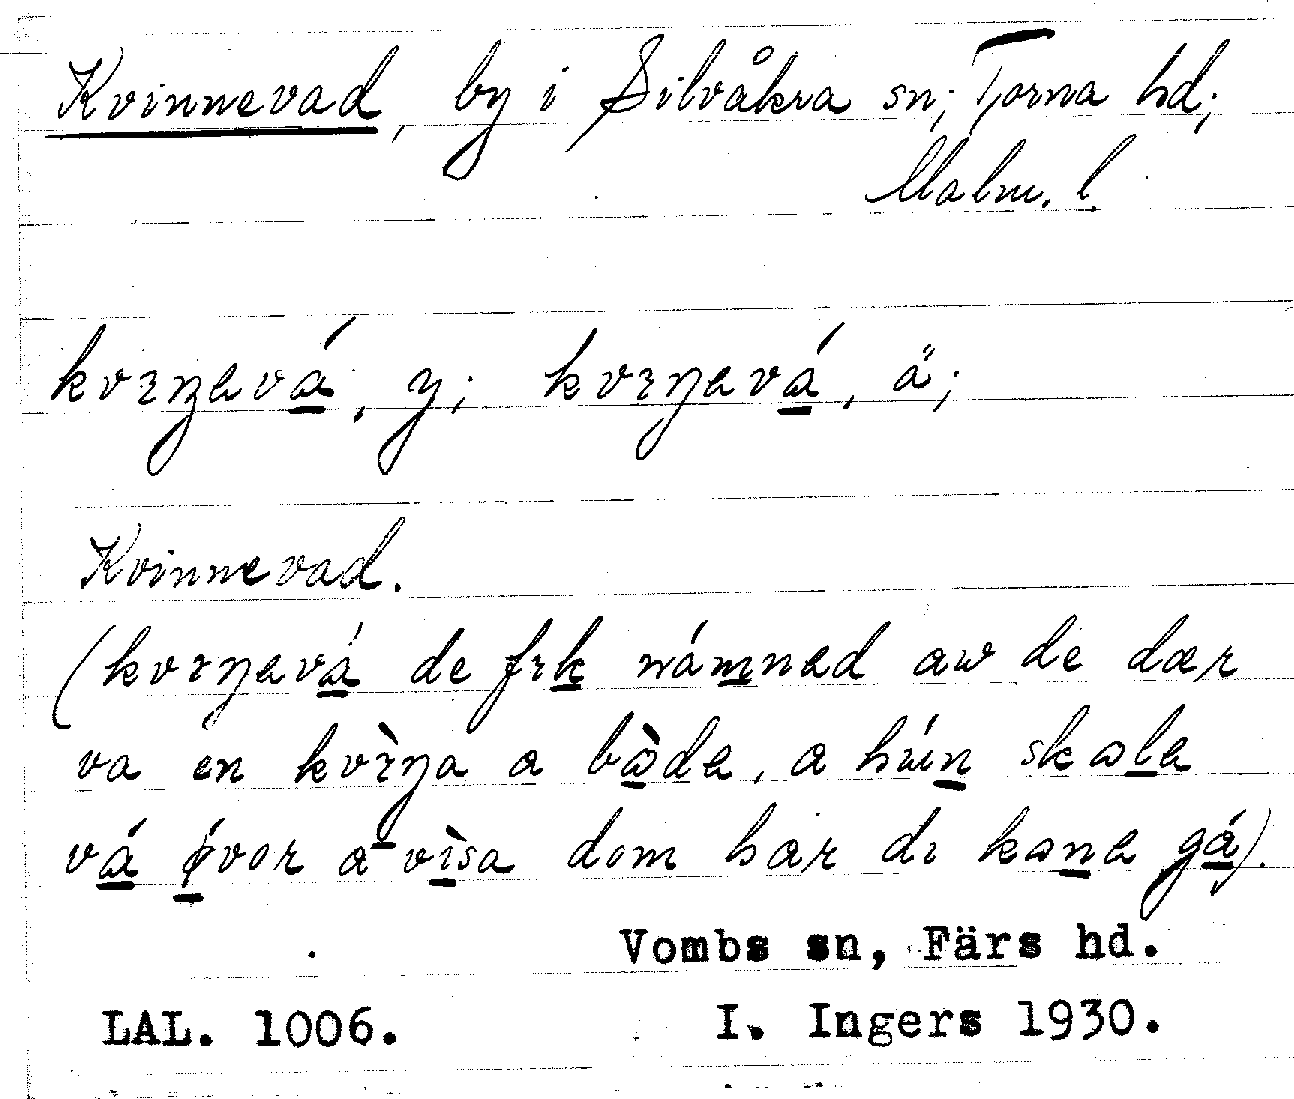 Kvinnevad, by i Silvåkra sn; Torna hd;
Malm. l.
kvıŋavá, y; kvıŋavá, ä;
Kvinnevad.
(kvıŋavá de frk námnad aw de dær
va en kvìŋa a bàda, a hún skala
vá øvor a vìsa dom har dı kana gá).
Vombs sn, Färs hd.
LAL. 1006. I. Ingers 1930.